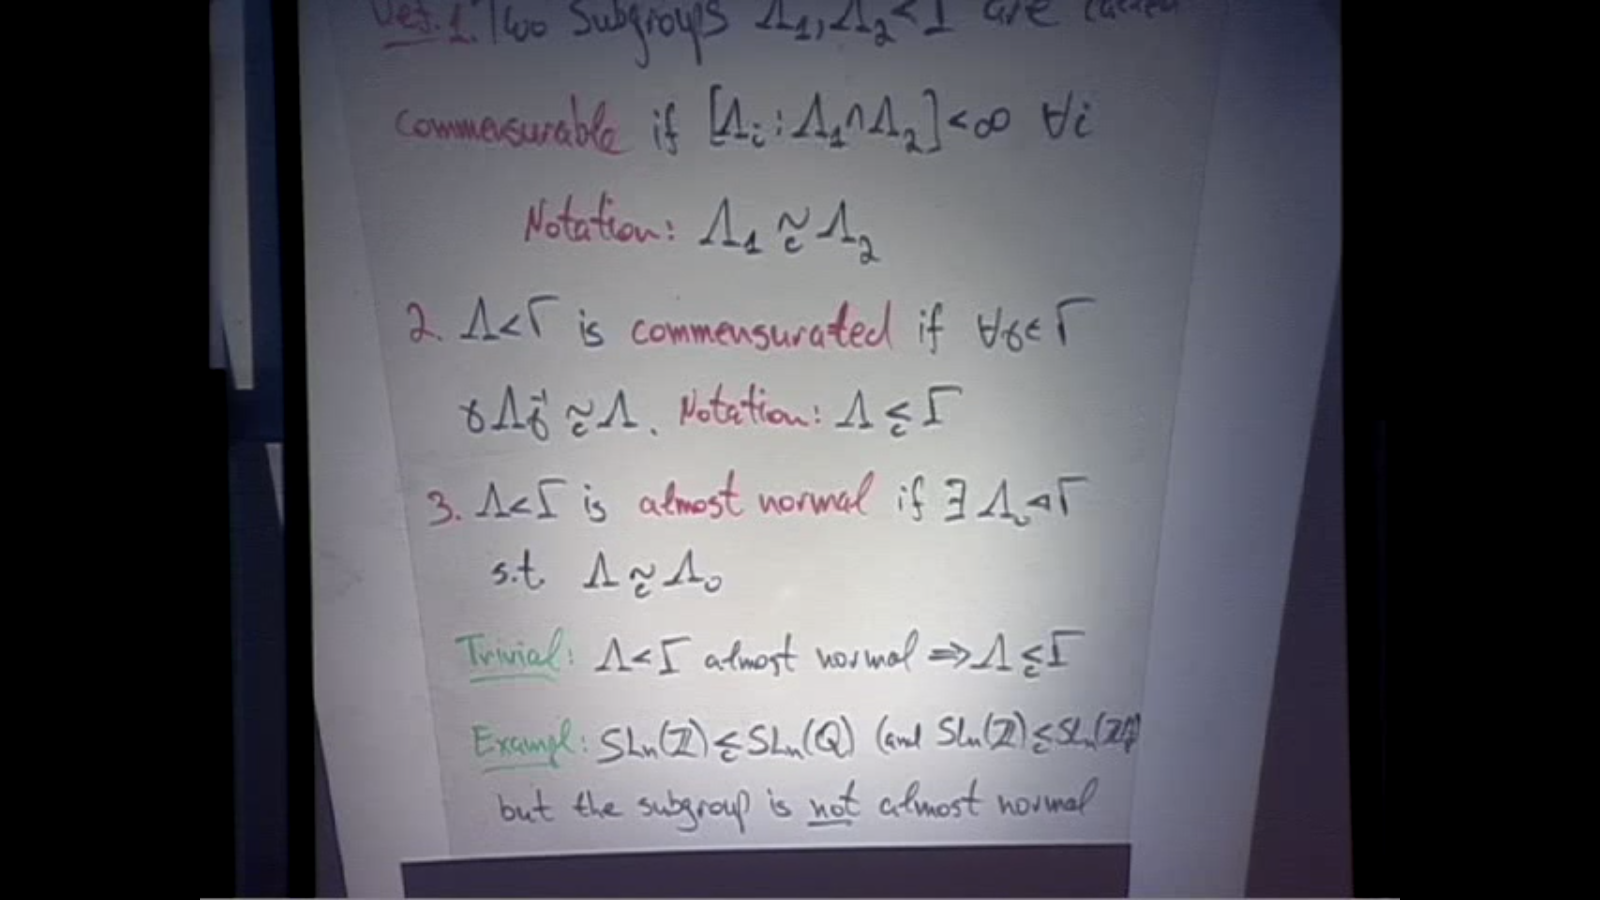 Def. 1. Two subgroups Λ₁, Λ₂ < Γ are called
commensurable if [Λᵢ : Λ₁∩Λ₂] < ∞ ∀i
Notation: Λ₁ ≈_c Λ₂
2. Λ<Γ is commensurated if ∀γ∈Γ
γΛγ⁻¹ ≈_c Λ. Notation: Λ ≤_c Γ
3. Λ<Γ is almost normal if ∃ Λ₀ ◁ Γ
s.t. Λ ≈_c Λ₀
Trivial: Λ<Γ almost normal ⇒ Λ ≤_c Γ
Exampl: SLn(ℤ) ≤_c SLn(ℚ) (and SLn(ℤ) ≤_c SLn(ℤ
but the subgroup is not almost normal